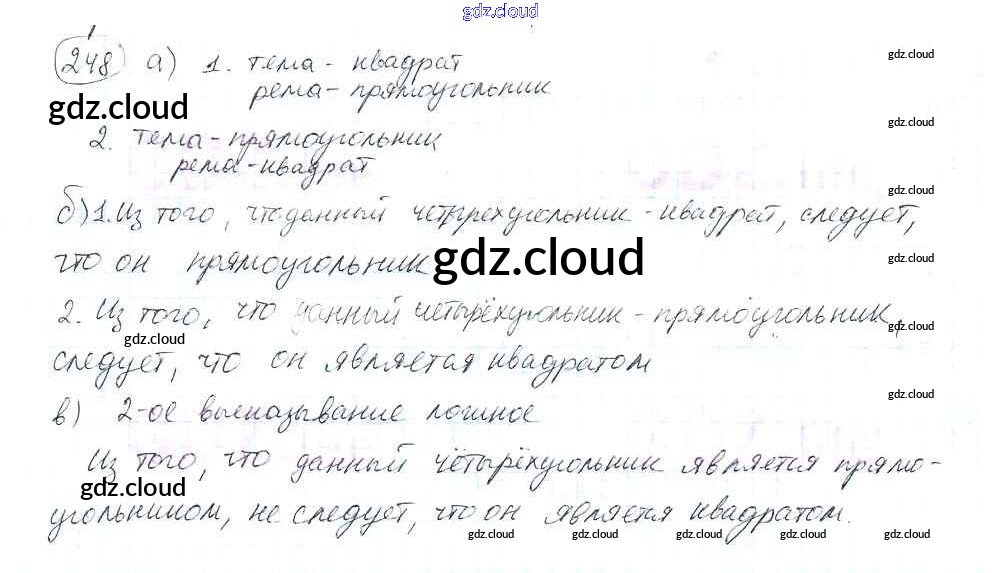 gdz.cloud
248 а) 1. тема - квадрат
gdz.cloud
рема - прямоугольник
gdz.cloud
gdz.cloud
2. тема - прямоугольник
рема - квадрат
gdz.cloud
б) 1. Из того, что данный четырехугольник - квадрат, следует,
что он прямоугольник
gdz.cloud
gdz.cloud
2. Из того, что данный четырёхугольник - прямоугольник,
gdz.cloud
gdz.cloud
следует, что он является квадратом
gdz.cloud
в) 2-ое высказывание ложное
Из того, что данный четырёхугольник является прямо-
gdz.cloud
угольником, не следует, что он является квадратом.
gdz.cloud gdz.cloud gdz.cloud gdz.cloud gdz.cloud